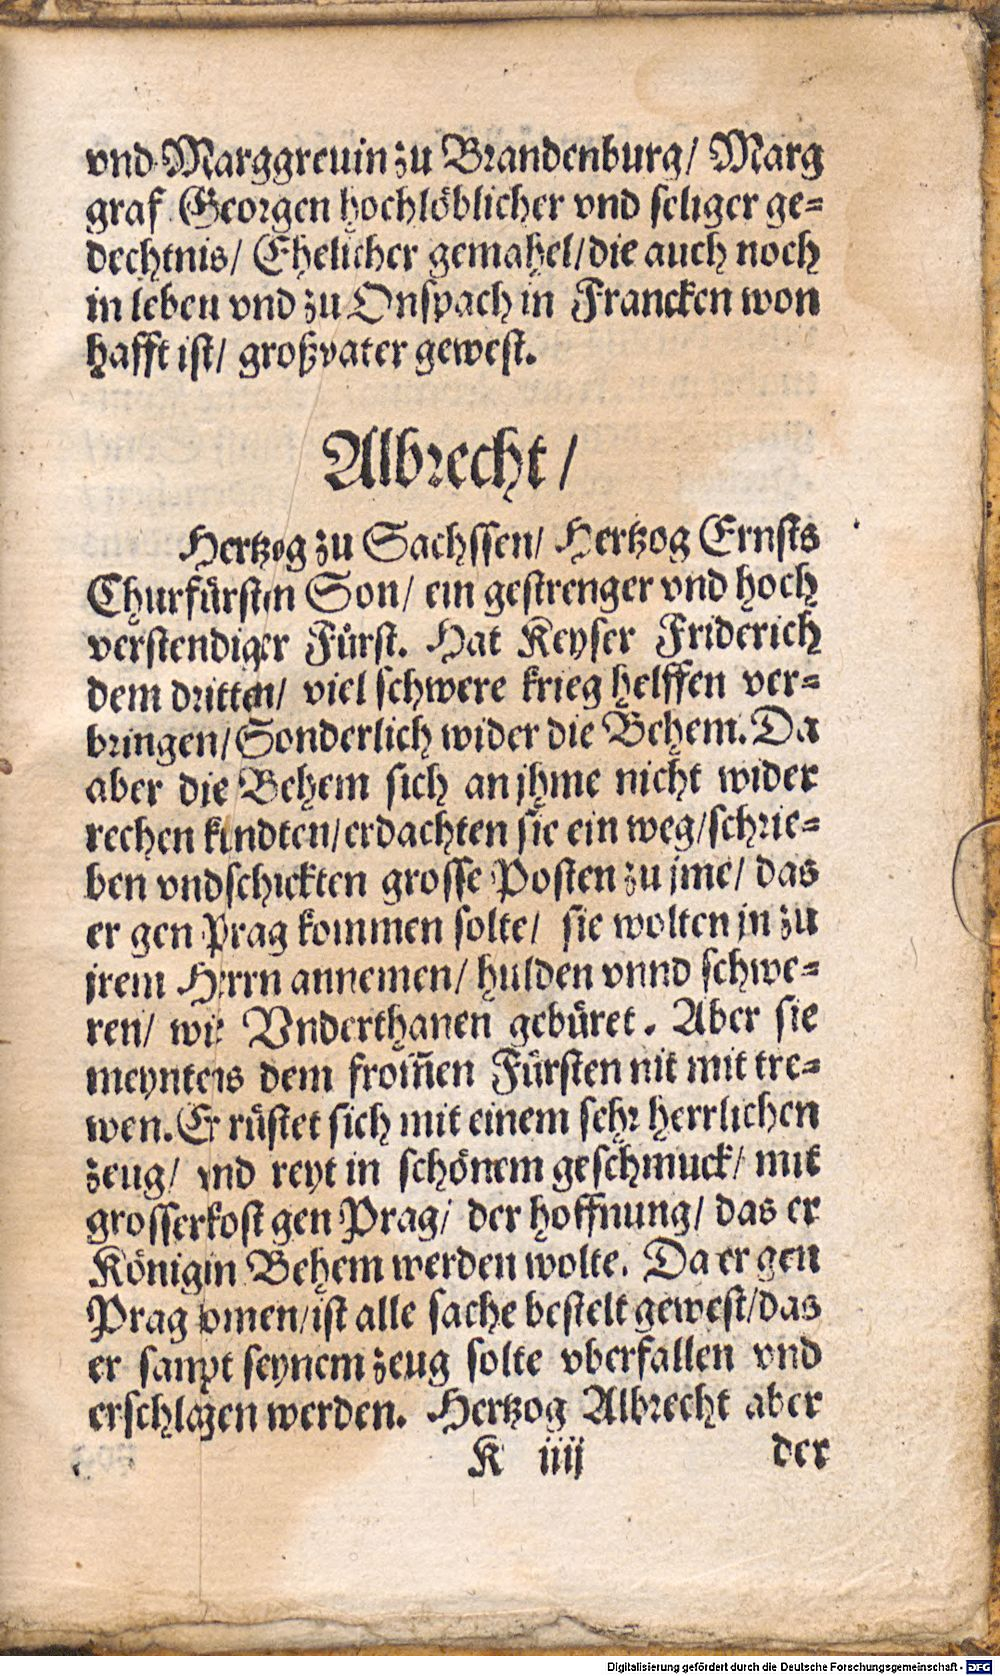 vnd Marggreuin zu Brandenburg/ Marg
graf Georgen hochlöblicher vnd seliger ge=
dechtnis/ Ehelicher gemahel/die auch noch
in leben vnd zu Onspach in Francken won
hafft ist/ großvater gewest.
Albrecht/
Hertzog zu Sachssen/ Hertzog Ernsts
Churfürsten Son/ ein gestrenger vnd hoch
verstendiger Fürst. Hat Keyser Friderich
dem dritten/ viel schwere krieg helffen ver=
bringen/Sonderlich wider die Behem. Da
aber die Behem sich an jhme nicht wider
rechen kundten/erdachten sie ein weg/schrie=
ben vndschickten grosse Posten zu jme/ das
er gen Prag kommen solte/ sie wolten jn zu
jrem Herrn annemen/ hulden vnnd schwe=
ren/ wie Vnderthanen gebüret. Aber sie
meyntens dem from̃en Fürsten nit mit tre=
wen. Er rüstet sich mit einem sehr herrlichen
zeug/ vnd reyt in schönem geschmuck/ mit
grosserkost gen Prag/ der hoffnung/ das er
König in Behem werden wolte. Da er gen
Prag komen/ist alle sache bestelt gewest/das
er sampt seynem zeug solte vberfallen vnd
erschlagen werden. Hertzog Albrecht aber
K iiij der
Digitalisierung gefördert durch die Deutsche Forschungsgemeinschaft - DFG